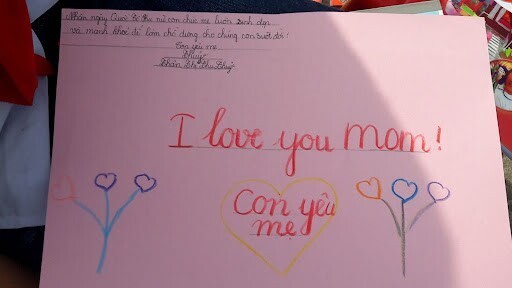 Nhân ngày Quốc tế Phụ nữ con chúc mẹ luôn xinh đẹp
và mạnh khoẻ để làm chỗ dựng cho chúng con suốt đời!
Con yêu mẹ
Thuỳ
Phan Thị Thu Thuỳ
I love you mom!
Con yêu
mẹ